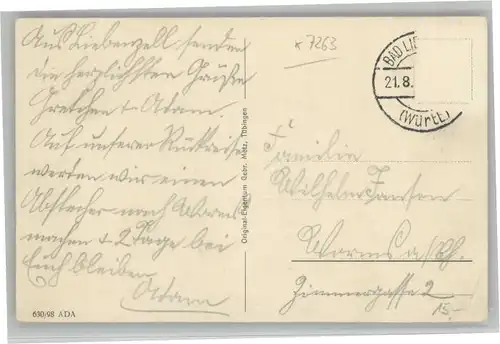 Aus Liebenzell senden
die herzlichsten Grüße
Gretchen + Adam.
Auf unserer Rückreise
werden wir einen
Abstecher nach Worms
machen + 2 Tage bei
Euch bleiben
Adam
630/98 ADA
Original-Eigentum Gebr. Metz, Tübingen
* 7263
BAD LIE
21.8.
(Württ.)
Familie
Wilhelm Jansen
Worms a/Rh.
Zimmergasse 2
15.-